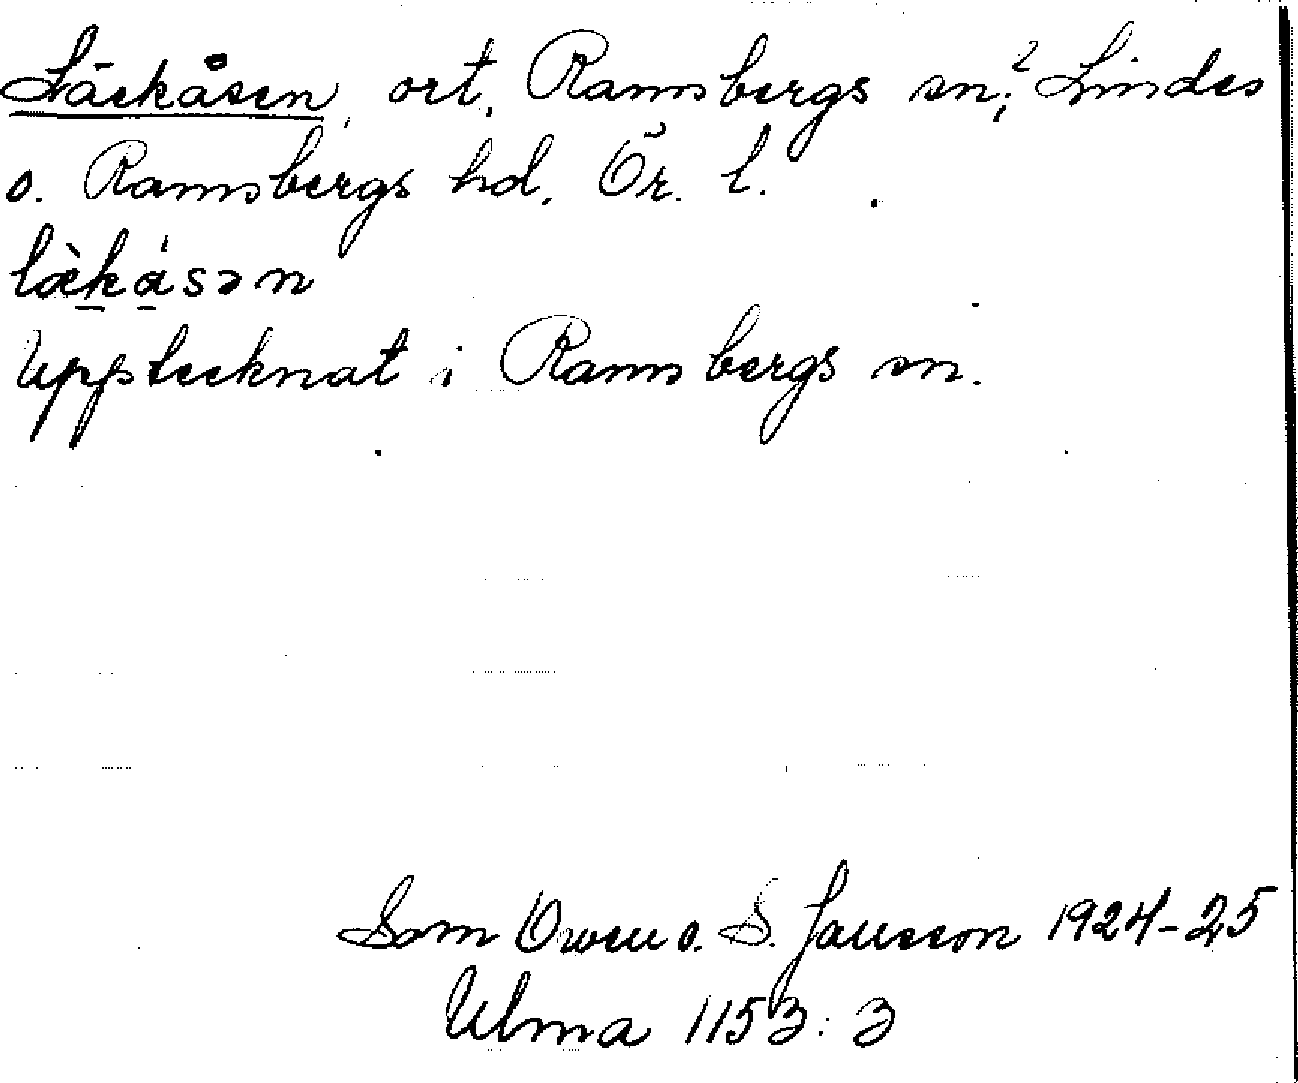 Läckåsen, ort, Ramsbergs sn,² Lindes
o. Ramsbergs hd. Ör. l.
læ̀kásən
Upptecknat i Ramsbergs sn.
Sam Owen o. S. Jansson 1924-25
Ulma 1153:3